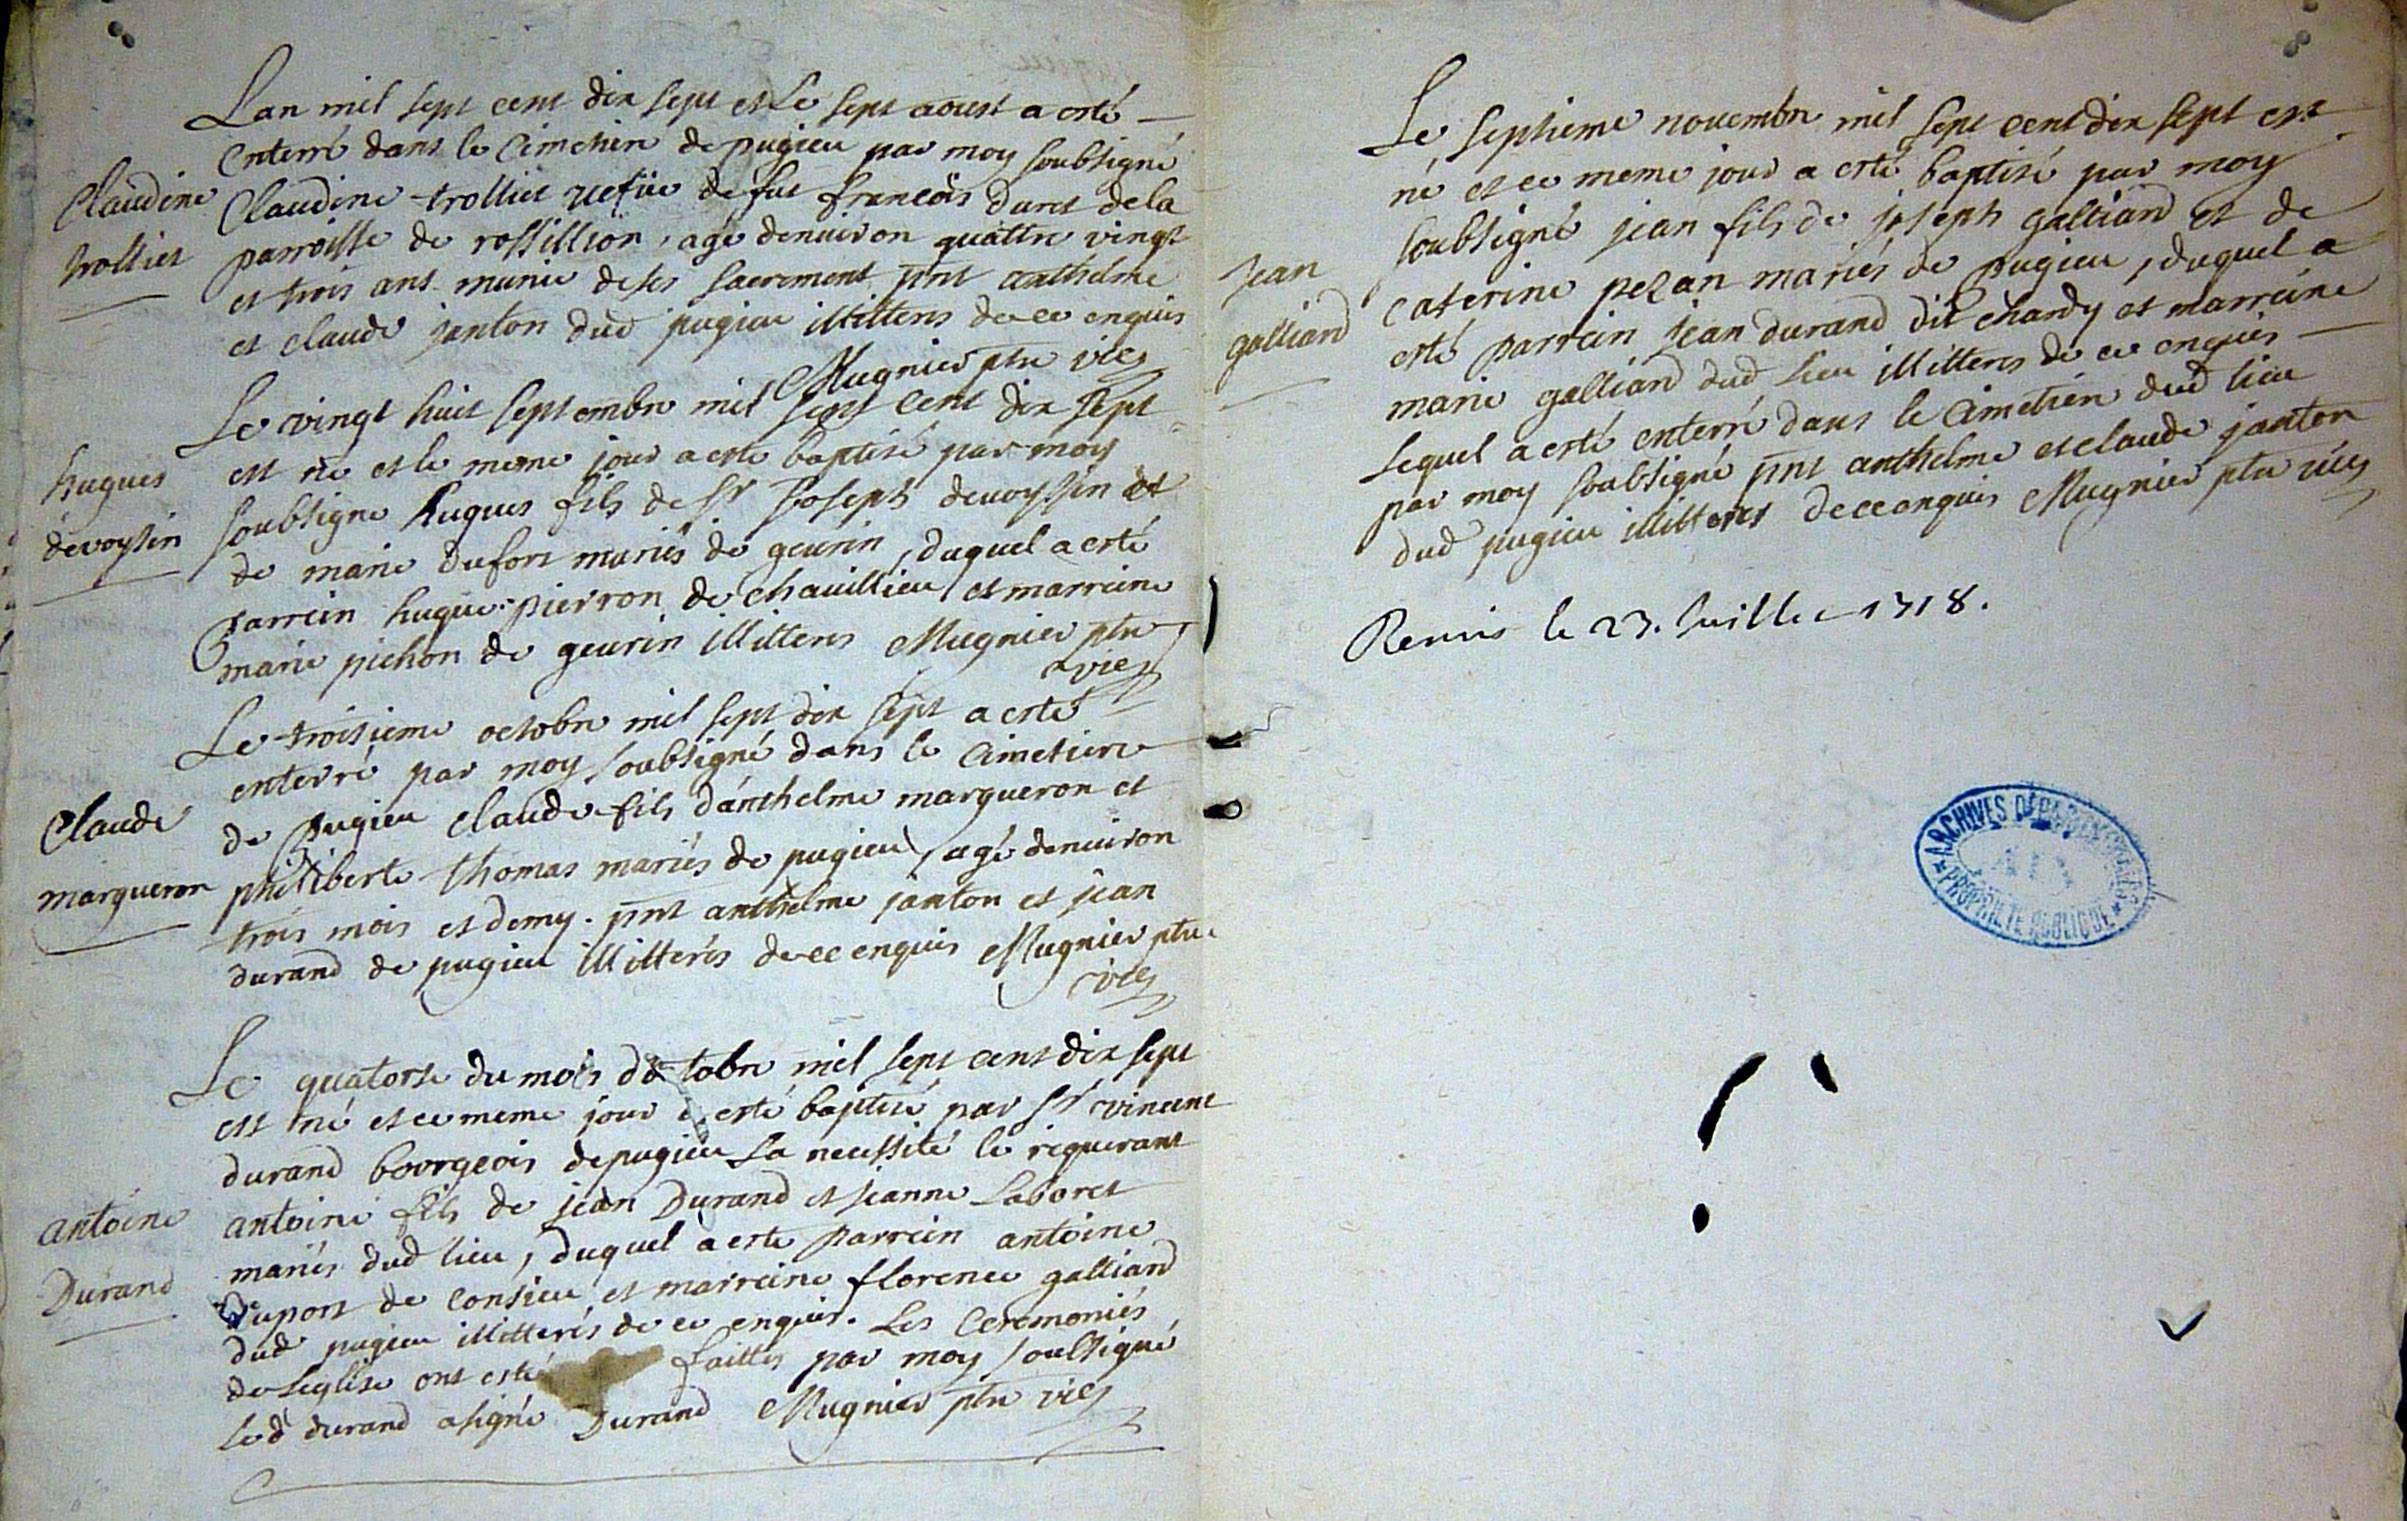 Lan mil sept cent dix sept et Le sept aoust a esté
enterré dans le Cimetiere de pugieu par moy soubsigné
Claudine trolliet vefue de fut francois duret de la
parroisse de rossillion, agé denuiron quattre vingt
et trois ans munie de ses sacrement pnt anthelme
et claude janton dud pugieu illitteres de ce enquis
Mugnier ptre vic
Claudine
trolliet
Le vingt huit septembre mil sept cent dix sept
est né et le meme jour a esté baptisé par moy
soubsigne hugues fils de Sr Joseph devoysin et
de marie dufort mariés de geurin, duquel a esté
parrein hugue pierron de chauillieu et marreine
marie pichon de geurin illitteres Mugnier ptre
vic
hugues
devoysin
Le troisieme octobre mil sept dix sept a esté
enterré par moy soubsigné dans le Cimetiere
de Pugieu claude fils d'anthelme margueron et
philiberte thomas mariés de pugieu, agé denuiron
trois mois et demy. pnt anthelme janton et jean
durand de pugieu illitterés de ce enquis Mugnier ptre
vic
Claude
margueron
Le quatorse du mois d'octobre mil sept cent dix sept
est né et ce meme jour a esté baptisé par Sr vincent
durand bourgeois de pugieu La necessité le requerant
antoine fils de jean Durand et jeanne Laboret
mariés dud lieu, duquel a esté parrein antoine
Dupont de consieu et marreine florence galliand
dud pugieu illitterés de ce enquis. Les Ceremoniés
de Leglise ont esté faittes par moy soubsigné
Led durand a signé Durand Mugnier ptre vic
antoine
Durand
Le septieme novembre mil sept cent dix sept est
né et ce meme jour a esté baptisé par moy
soubsigné jean fils de joseph galliand et de
caterine pezan mariés de pugieu, duquel a
esté parrein jean durand dit chardy et marreine
marie galliand dud lieu illitteres de ce enquis
Lequel a esté enterré dans le Cimetiere dud lieu
par moy soubsigné pnt anthelme et claude janton
dud pugieu illitteres de ce enquis Mugnier ptre vic
jean
galliand
Remis le 23. Juillet 1718.
ARCHIVES DÉPARTEMENTALES
AIN
PROPRIÉTÉ PUBLIQUE